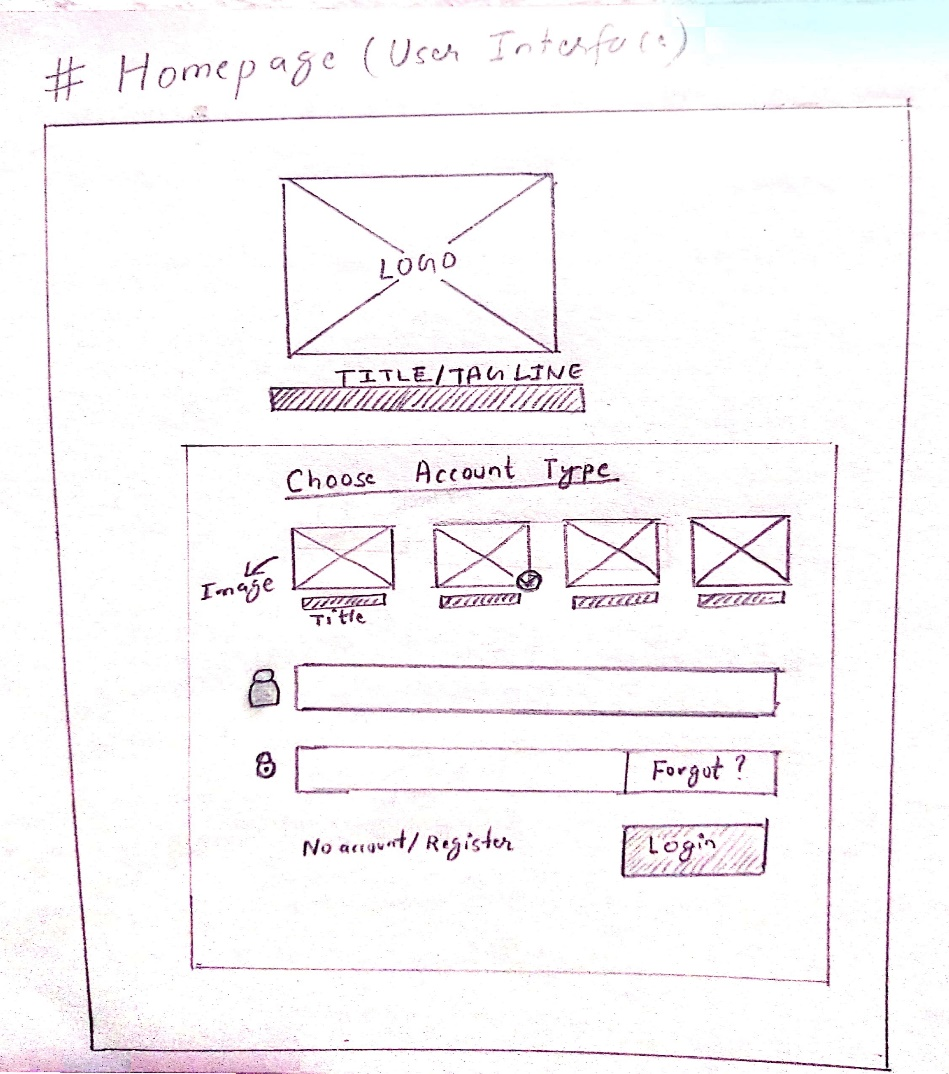 # Homepage (User Interface)
LOGO
TITLE/TAGLINE
Choose Account Type
Image
Title
Forgot ?
No account/Register
Login